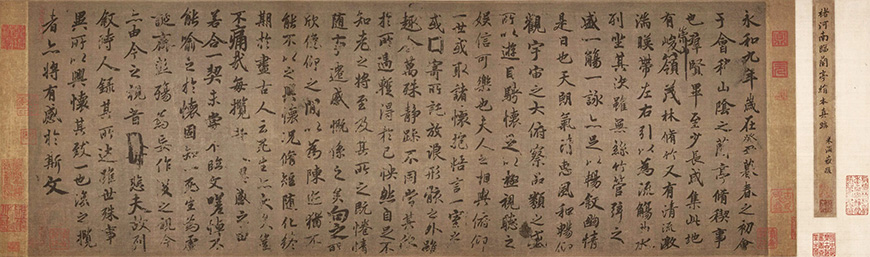 褚河南臨蘭亭絹本真蹟
永和九年歲在癸丑暮春之初會
于會稽山陰之蘭亭脩稧事
也羣賢畢至少長咸集此地
有崇山峻領茂林脩竹又有清流激
湍暎帶左右引以為流觴曲水
列坐其次雖無絲竹管弦之
盛一觴一詠亦足以暢叙幽情
是日也天朗氣清惠風和暢仰
觀宇宙之大俯察品類之盛
所以遊目騁懷足以極視聽之
娛信可樂也夫人之相與俯仰
一世或取諸懷抱悟言一室之內
或因寄所託放浪形骸之外雖
趣舍萬殊靜躁不同當其欣
於所遇蹔得於己怏然自足不
知老之將至及其所之既惓情
隨事遷感慨係之矣向之所
欣俛仰之間以為陳迹猶不
能不以之興懷況脩短隨化終
期於盡古人云死生亦大矣豈
不痛哉每攬昔人興感之由
若合一契未嘗不臨文嗟悼不
能喻之於懷固知一死生為虛
誕齊彭殤為妄作後之視今
亦由今之視昔悲夫故列
叙時人錄其所述雖世殊事
異所以興懷其致一也後之攬
者亦將有感於斯文